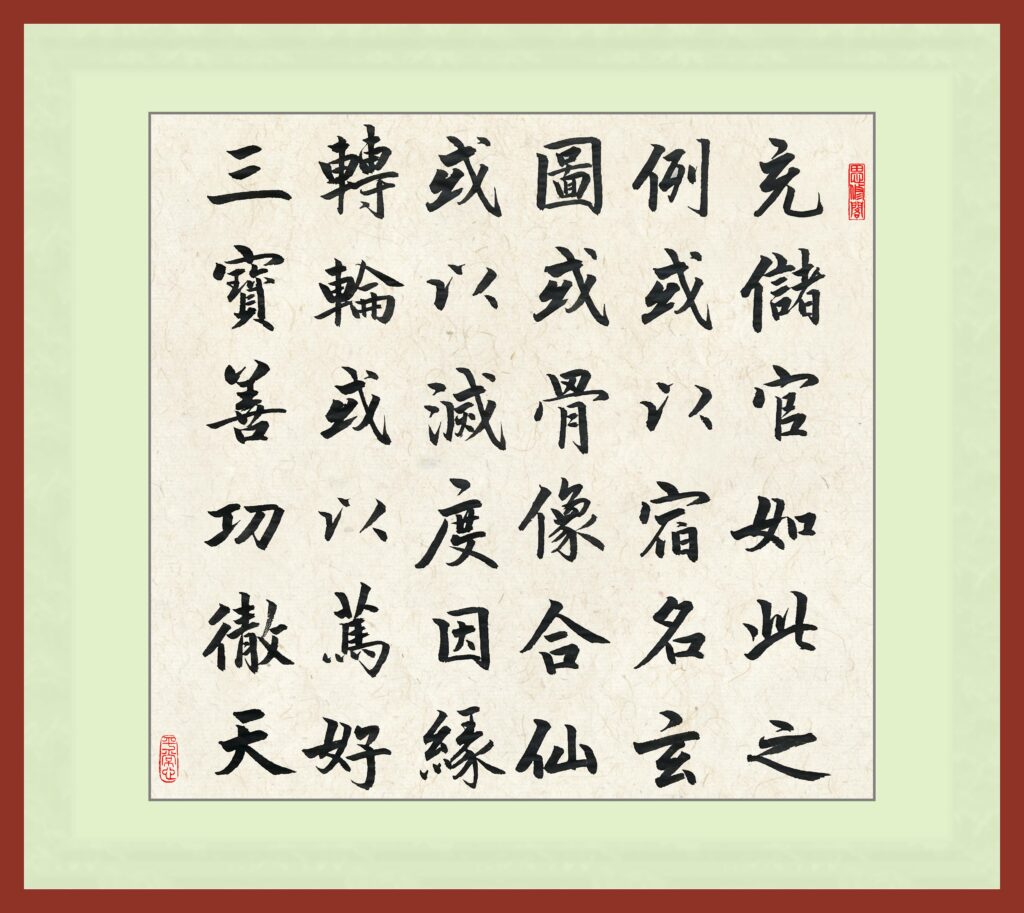 思修閣
充儲官如此之
例或以宿名玄
圖或骨像合仙
或以滅度因緣
轉輪或以篤好
三寶善功徹天
平常心